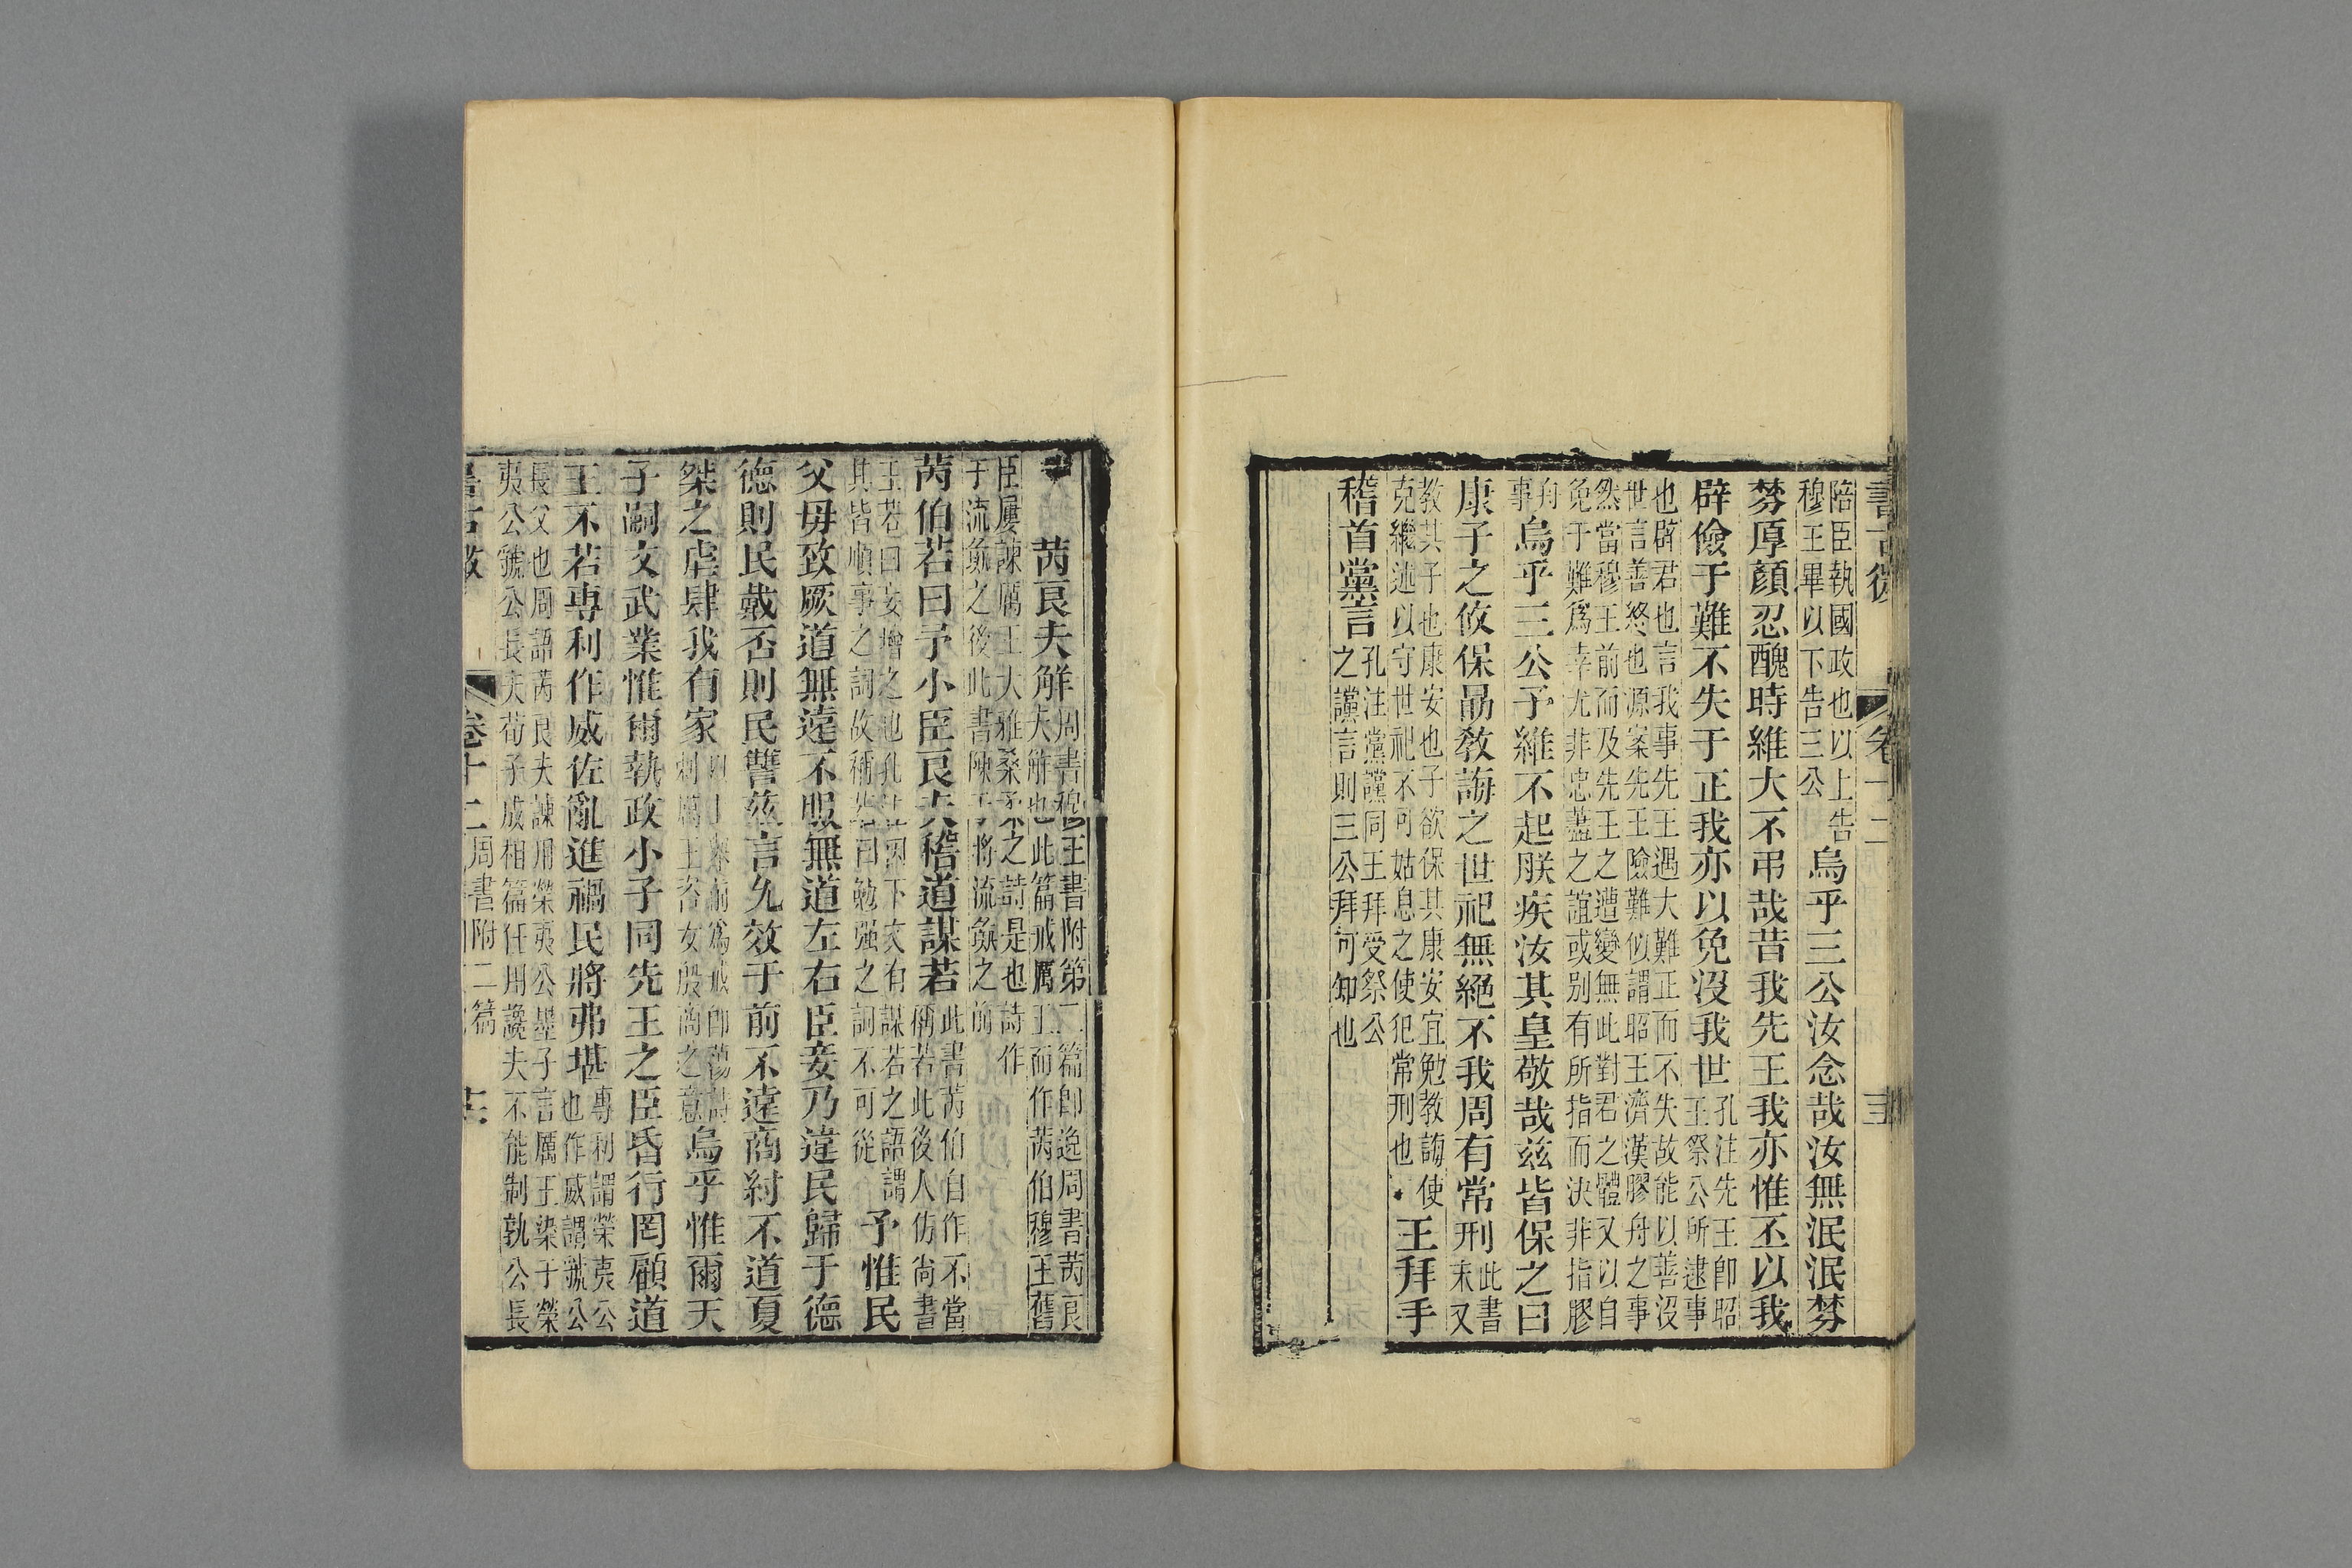 書古微 卷十二
陪臣執國政也以上告
穆王畢以下告三公
烏乎三公汝念哉汝無泯泯棼
棼厚顏忍醜時維大不弔哉昔我先王我亦惟丕以我
辟儉于難不失于正我亦以免沒我世
孔注先王卽昭
王祭公所逮事
也辟君也言我事先王遇大難正而不失故能以善沒
世言善終也源案先王險難似謂昭王濟漢膠舟之事
然當穆王前而及先王之遭變無此對君之體又以自
免于難爲幸尤非忠藎之誼或别有所指而決非指膠
舟
事
烏乎三公予維不起朕疾汝其皇敬哉兹皆保之曰
康子之攸保勗敎誨之世祀無絕不我周有常刑
此書
末又
教其子也康安也子欲保其康安宜勉教誨使
克繼述以守世祀不可姑息之使犯常刑也
王拜手
稽首黨言
孔注黨讜同王拜受祭公
之讜言則三公拜可知也
芮良夫解
周書穆王書附第二篇卽逸周書芮良
夫解也此篇戒厲王而作芮伯穆王舊
臣屢諫厲王大雅桑柔之詩是也詩作
于流彘之後此書陳于將流彘之前
芮伯若曰予小臣良夫稽道謀若
此書芮伯自作不當
稱若此後人仿尚書
王若曰妄增之也孔注因下文有謀若之語謂
其皆順事之詞故稱若曰勉强之詞不可從
予惟民
父毋致厥道無遠不服無道左右臣妾乃違民歸于德
德則民戴否則民讐兹言允效于前不遠商紂不道夏
桀之虐肆我有家
烏乎惟爾天
子嗣文武業惟爾執政小子同先王之臣昏行罔顧道
王不若專利作威佐亂進禍民將弗堪
專利謂榮夷公
也作威謂虢公
長父也周語芮良夫諫用榮夷公墨子言厲王染于榮
夷公虢公長夫荀子成相篇任用讒夫不能制孰公長
書古微 卷十二 周書附二篇